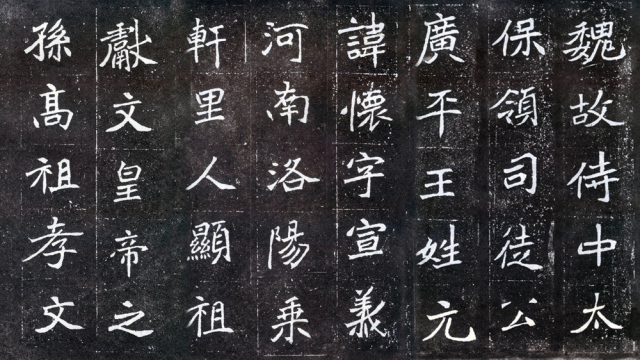 魏故侍中太
保領司徒公
廣平王姓元
諱懷字宣義
河南洛陽乗
軒里人顯祖
獻文皇帝之
孫髙祖孝文